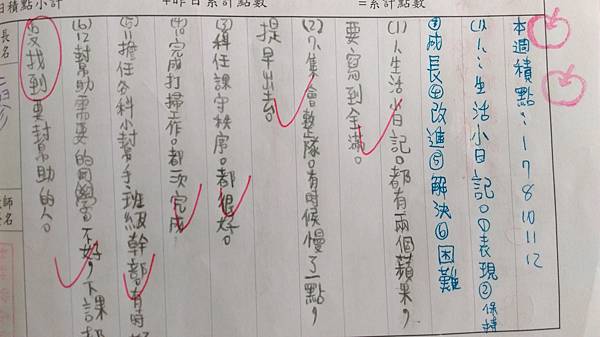 日積點小計
+昨日累計點數
=累計點數
本週積點：1 7 8 10 11 12
(1)1、：生活小日記。①表現②保持
③成長④改進⑤解決⑥困難
(1)1、生活小日記。都有兩個蘋果，
要寫到全滿。
(2)7、集會整隊。有時候慢了一點，
提早出去。
(3)科任課守秩序。都很好。
(4)10完成打掃工作。都一次完成
(5)11擔任各科小幫手、班級幹部。有時
(6)12幫助需要的同學。不好，下課
找到要幫助的人。
長名
師名